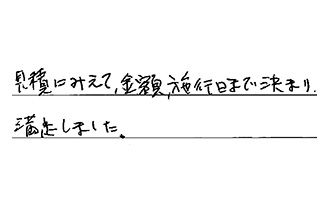 見積にみえて、金額、施行日まで決まり、
満足しました。